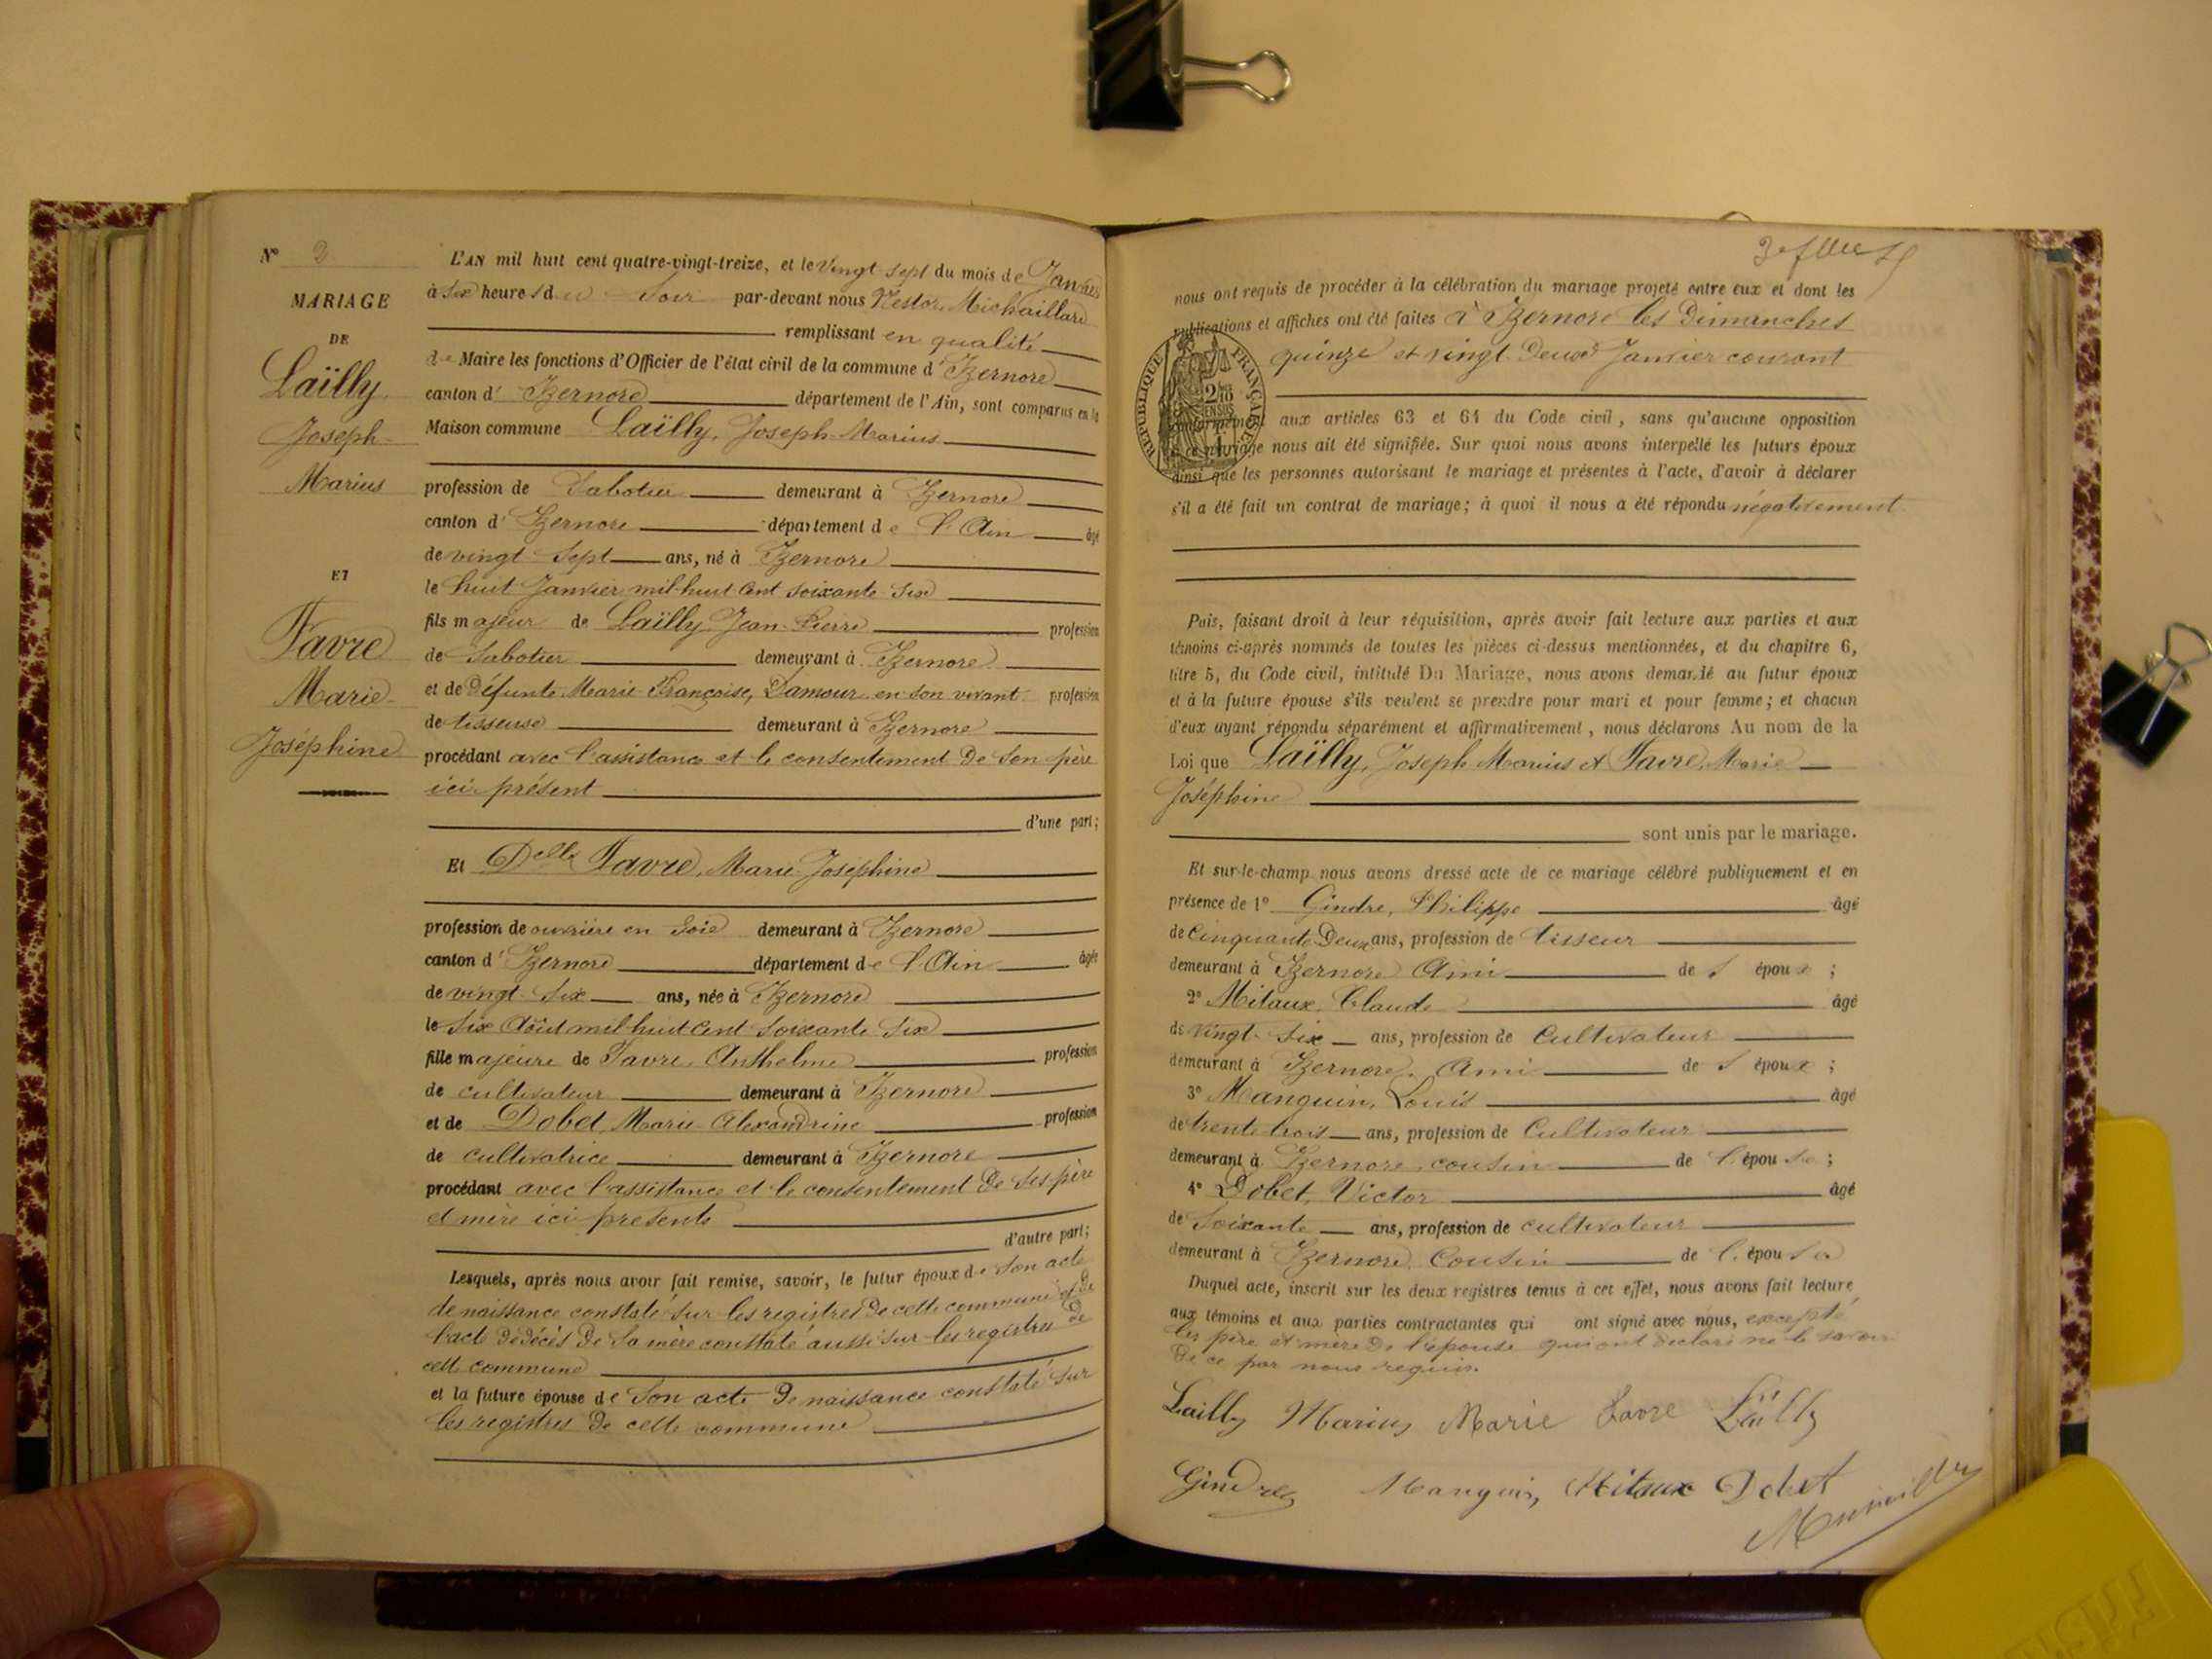 N° 2
MARIAGE
DE
Laïlly
Joseph
Marius
ET
Favre
Marie
Joséphine
L'AN mil huit cent quatre-vingt-treize, et le Vingt sept du mois de Janvier
à Six heures du Soir par-devant nous Nestor Michaillard
remplissant en qualité
de Maire les fonctions d'Officier de l'état civil de la commune d'Izernore
canton d'Izernore département de l'Ain, sont comparus en la
Maison commune Laïlly, Joseph Marius
profession de Sabotier demeurant à Izernore
canton d'Izernore département de l'Ain âgé
de vingt Sept ans, né à Izernore
le huit Janvier mil huit Cent soixante Six
fils majeur de Laïlly Jean-Pierre profession
de Sabotier demeurant à Izernore
et de Défunte Marie Françoise, Damour en son vivant profession
de tisseuse demeurant à Izernore
procédant avec l'assistance et le consentement de Son père
ici présent
d'une part;
Et Delle Favre, Marie Joséphine
profession de ouvrière en Soie demeurant à Izernore
canton d'Izernore département de l'Ain âgée
de vingt Six ans, née à Izernore
le Six Août mil huit Cent Soixante Six
fille majeure de Favre, Anthelme profession
de cultivateur demeurant à Izernore
et de Dobet, Marie Alexandrine profession
de cultivatrice demeurant à Izernore
procédant avec l'assistance et le consentement de Ses père
et mère ici présents
d'autre part;
Lesquels, après nous avoir fait remise, savoir, le futur époux de Son acte
de naissance constaté sur les registres de cette commune et de
l'acte de décès de Sa mère constaté aussi sur les registres de
cette commune
et la future épouse de Son acte de naissance constaté sur
les registres de cette commune
nous ont requis de procéder à la célébration du mariage projeté entre eux et dont les
publications et affiches ont été faites à Izernore les Dimanches
quinze et vingt Deux Janvier courant
RÉPUBLIQUE FRANÇAISE
conformément aux articles 63 et 64 du Code civil, sans qu'aucune opposition
à ce mariage nous ait été signifiée. Sur quoi nous avons interpellé les futurs époux
ainsi que les personnes autorisant le mariage et présentes à l'acte, d'avoir à déclarer
s'il a été fait un contrat de mariage; à quoi il nous a été répondu négativement
Puis, faisant droit à leur réquisition, après avoir fait lecture aux parties et aux
témoins ci-après nommés de toutes les pièces ci-dessus mentionnées, et du chapitre 6,
titre 5, du Code civil, intitulé Du Mariage, nous avons demandé au futur époux
et à la future épouse s'ils veulent se prendre pour mari et pour femme; et chacun
d'eux ayant répondu séparément et affirmativement, nous déclarons Au nom de la
Loi que Laïlly, Joseph Marius et Favre, Marie
Joséphine
sont unis par le mariage.
Et sur-le-champ nous avons dressé acte de ce mariage célébré publiquement et en
présence de 1° Gindre, Philippe âgé
de Cinquante Deux ans, profession de tisseur
demeurant à Izernore Ami de l'époux ;
2° Mitaux, Claude âgé
de vingt Six ans, profession de Cultivateur
demeurant à Izernore, Ami de l'époux ;
3° Manguin, Louis âgé
de trente trois ans, profession de Cultivateur
demeurant à Izernore, cousin de l'épouse ;
4° Dobet, Victor âgé
de Soixante ans, profession de cultivateur
demeurant à Izernore, Cousin de l'épouse
Duquel acte, inscrit sur les deux registres tenus à cet effet, nous avons fait lecture
aux témoins et aux parties contractantes qui ont signé avec nous, excepté
les père et mère de l'épouse qui ont déclaré ne le savoir
de ce par nous requis.
Lailly Marius Marie Favre Laïlly
Gindre Manguin, Mitaux Dobet